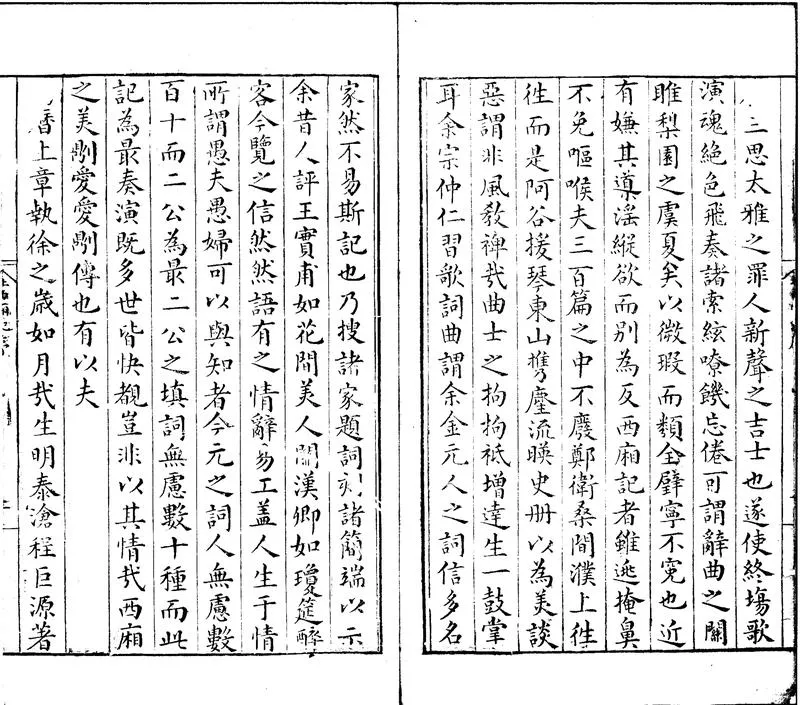 三思太雅之罪人新聲之吉士也遂使終塲歌
演魂絕色飛奏諸索絃嘹饑忘倦可謂辭曲之關
雎梨園之虞夏矣以微瑕而纇全璧寧不寃也近
有嫌其導滛縱欲而别為反西廂記者雖逃掩鼻
不免嘔喉夫三百篇之中不廢鄭衛桑間濮上徃
徃而是阿谷援琴東山携麈流暎史册以為美談
惡謂非風敎裨㢤曲士之拘拘祇增達生一鼓掌
耳余宗仲仁習歌詞曲謂余金元人之詞信多名
家然不易斯記也乃搜諸家題詞刻諸簡端以示
余昔人評王實甫如花間美人關漢卿如瓊筵醉
客今覽之信然然語有之情辭易工盖人生于情
所謂愚夫愚婦可以與知者今元之詞人無慮數
百十而二公為最二公之填詞無慮數十種而此
記為最奏演既多世皆快覩豈非以其情㢤西廂
之美則愛愛則傳也有以夫
曆上章執徐之歳如月㢤生明泰滄程巨源著